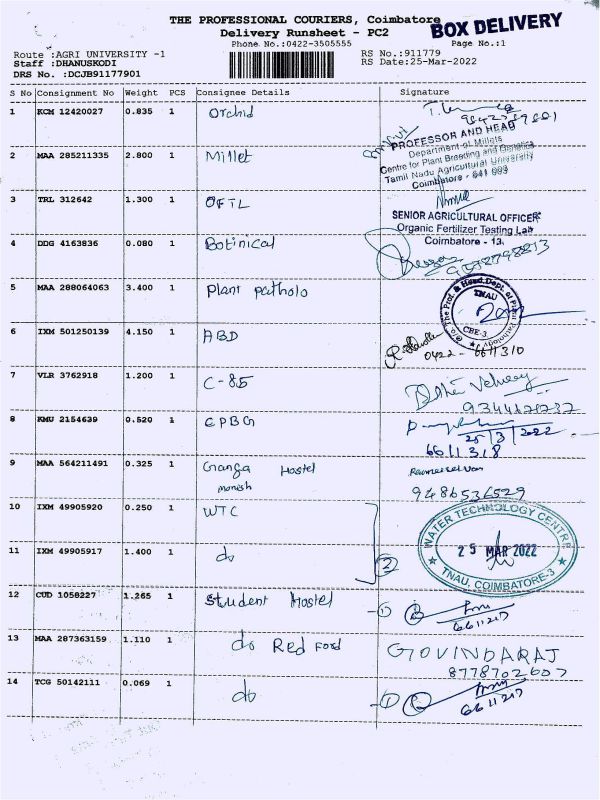 THE PROFESSIONAL COURIERS, Coimbatore
BOX DELIVERY
Delivery Runsheet - PC2
Phone No.:0422-3505555
Page No.:1
Route :AGRI UNIVERSITY -1
RS No.:911779
Staff :DHANUSKODI
RS Date:25-Mar-2022
DRS No. :DCJB91177901
S No Consignment No Weight PCS Consignee Details Signature
1 KCM 12420027 0.835 1 Orchid
PROFESSOR AND HEAD
Department of Millets
2 MAA 285211335 2.800 1 Millet
Centre for Plant Breeding and Genetics
Tamil Nadu Agricultural University
Coimbatore - 641 003
3 TRL 312642 1.300 1 OFTL
SENIOR AGRICULTURAL OFFICER
Organic Fertilizer Testing Lab
Coimbatore - 13.
4 DDG 4163836 0.080 1 Botinical
5 MAA 288064063 3.400 1 Plant patholo
O/o The Prof. & Head, Dept. of Plant Pathology
TNAU
CBE-3
6 IXM 501250139 4.150 1 ABD
0422 - 6611310
7 VLR 3762918 1.200 1 C-85
8 KMU 2154639 0.520 1 CPBG
25/3/2022
6611318
9 MAA 564211491 0.325 1 Ganga Hostel
9486536529
10 IXM 49905920 0.250 1 WTC
WATER TECHNOLOGY CENTRE
25 MAR 2022
TNAU, COIMBATORE-3
11 IXM 49905917 1.400 1 do
2
12 CUD 1058227 1.265 1 Student Hostel
1
6611217
13 MAA 287363159 1.110 1 do Red Ford
GOVINDARAJ
8778702607
14 TCG 50142111 0.069 1 do
1
6611217